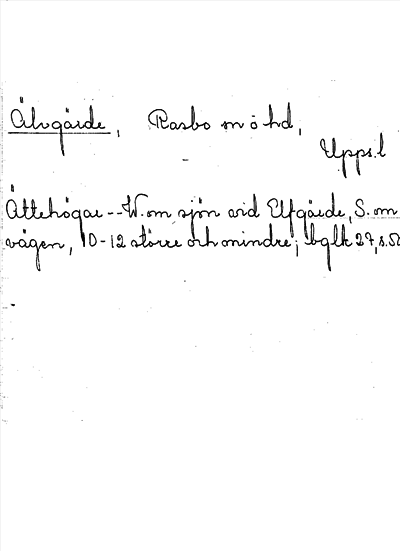 Älvgärde, Rasbo sn o hd,
Upps.l
Ättehögar -- W. om sjön vid Elfgärde, S. om
vägen, 10-12 större och mindre; bglk 27, s.52